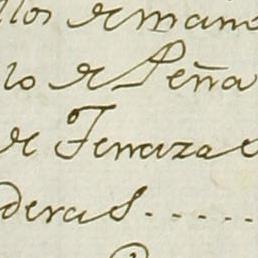 llos de mane
lo de Peña
de Terraza
deras.....